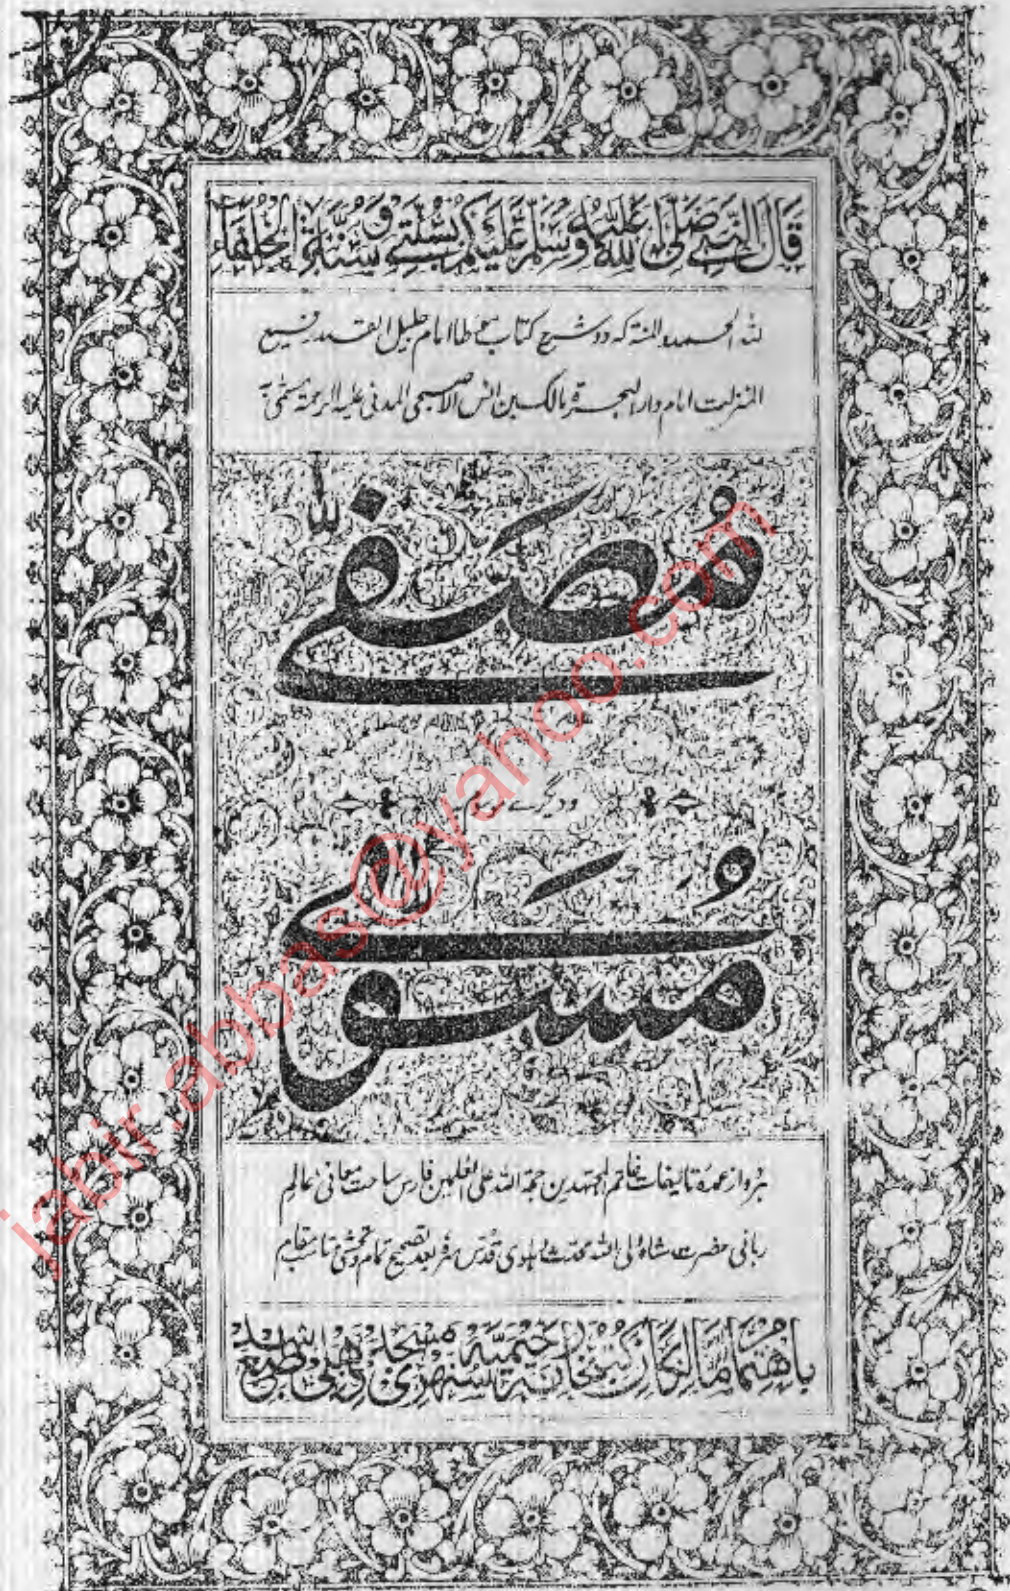 قَالَ النَّبِيُّ صَلَّى اللهُ عَلَيْهِ وَسَلَّمَ عَلَيْكُمْ بِسُنَّتِي وَسُنَّةِ الْخُلَفَاءِ
لله الحمد والمنة که دو شرح کتاب مؤطا امام جلیل القدر رفیع
المنزلت امام دار الهجرة مالک بن انس الاصبحی المدنی علیه الرحمة مسمی به
مُصَفّٰی
و دیگرے موسوم
مُسَوّٰی
هر دو از عمده تالیفات خاتم المجتهدین حجة الله علی العلمین فارس ساحت معانی عالم
ربانی حضرت شاه ولی الله محدث دهلوی قدس سره بعد تصحیح تمام و تحشی
باهتمام مالکان کتبخانه رحیمیه سنهری مسجد دهلی طبع
jabir.abbas@yahoo.com